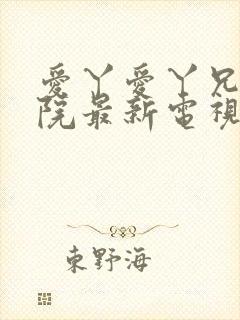 愛丫愛丫兄
院最新電視
東野海